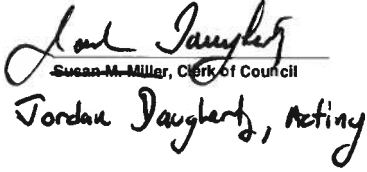 Jordan Daugherty
Susan M. Miller, Clerk of Council
Jordan Daugherty, Acting